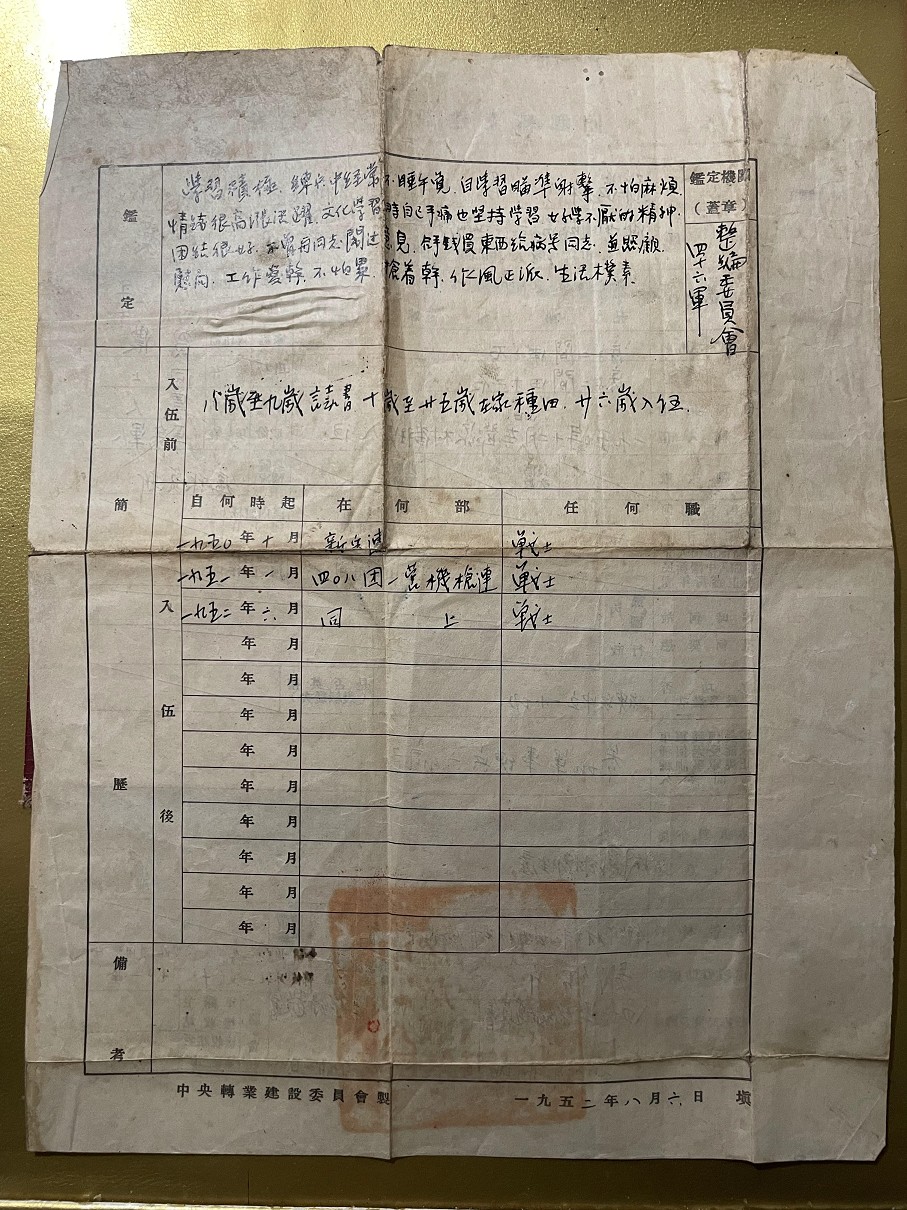 鑑定
学習積極、練兵中经常不睡午覚、自学習瞄準射擊、不怕麻煩
情緒很高很活躍、文化学習時自己手痛也坚持学習 好学不厭的精神
团结很好、不曾与同志闹过意見、舒钱買東西给病号同志、並照顧
慰问、工作實幹、不怕累、搶着幹、作風正派、生活樸素
鑑定機關
（蓋章）
整編委員會
四十六軍
簡歷
入伍前
八歲至九歲読書 十歲至廿五歲在家種田、廿六歲入伍.
入伍後
自何時起 在何部 任何職
一九五〇年十月 新兵連 戰士
一九五一年一月 四〇八团一营機槍連 戰士
一九五二年六月 同上 戰士
年 月
年 月
年 月
年 月
年 月
年 月
年 月
年 月
年 月
備考
中央轉業建設委員會製 一九五二年八月六日 填